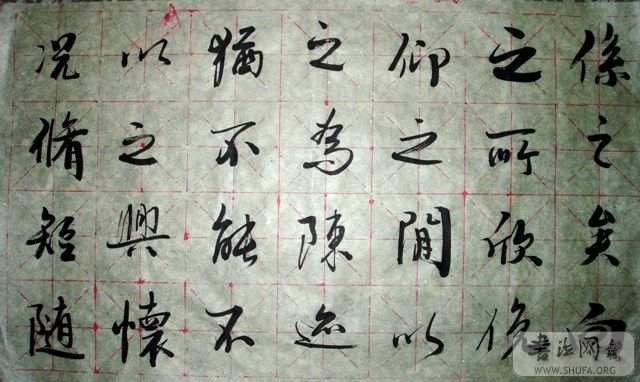 係之矣向
之所欣俛
仰之閒以
之為陳迹
猶不能不
以之興懷
況脩短隨
書法网
WWW.SHUFA.ORG